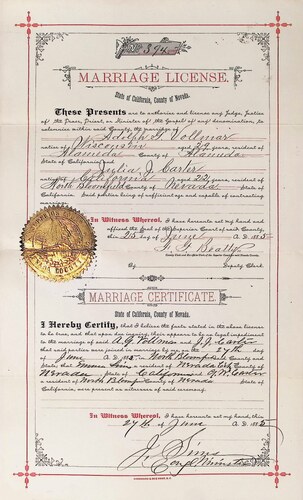 No. 394
MARRIAGE LICENSE.
State of California, County of Nevada.
These Presents are to authorize and license any Judge, Justice
of the Peace, Priest, or Minister of the Gospel of any denomination, to
solemnize within said County, the marriage of
Adolph G. Vollmar
native of Wisconsin aged 29 years, resident of
Alameda County of Alameda
State of California, and Julia J. Carter
native of California aged 22 years, resident of
North Bloomfield County of Nevada State of
California. Said parties being of sufficient age and capable of contracting
marriage.
In Witness Whereof, I have hereunto set my hand and
affixed the Seal of the Superior Court of said County,
this 25 day of June A. D. 1885
F. G. Beatty
By Deputy Clerk.
MARRIAGE CERTIFICATE.
State of California, County of Nevada.
I Hereby Certify, that I believe the facts stated in the above license
to be true, and that upon due inquiry, there appears to be no legal impediment
to the marriage of said A. G. Vollmar and J. J. Carter
that said parties were joined in marriage by me on the 27th day
of June A. D. 1885, in North Bloomfield County and
State; that a resident of Nevada City County of
Nevada State of California and
a resident of North Bloomf County of Nevada State of
California, were present as witnesses of said ceremony.
In Witness Whereof, I have hereunto set my hand, this
27th of June A. D. 1885
J. Sims
Cong. Minister